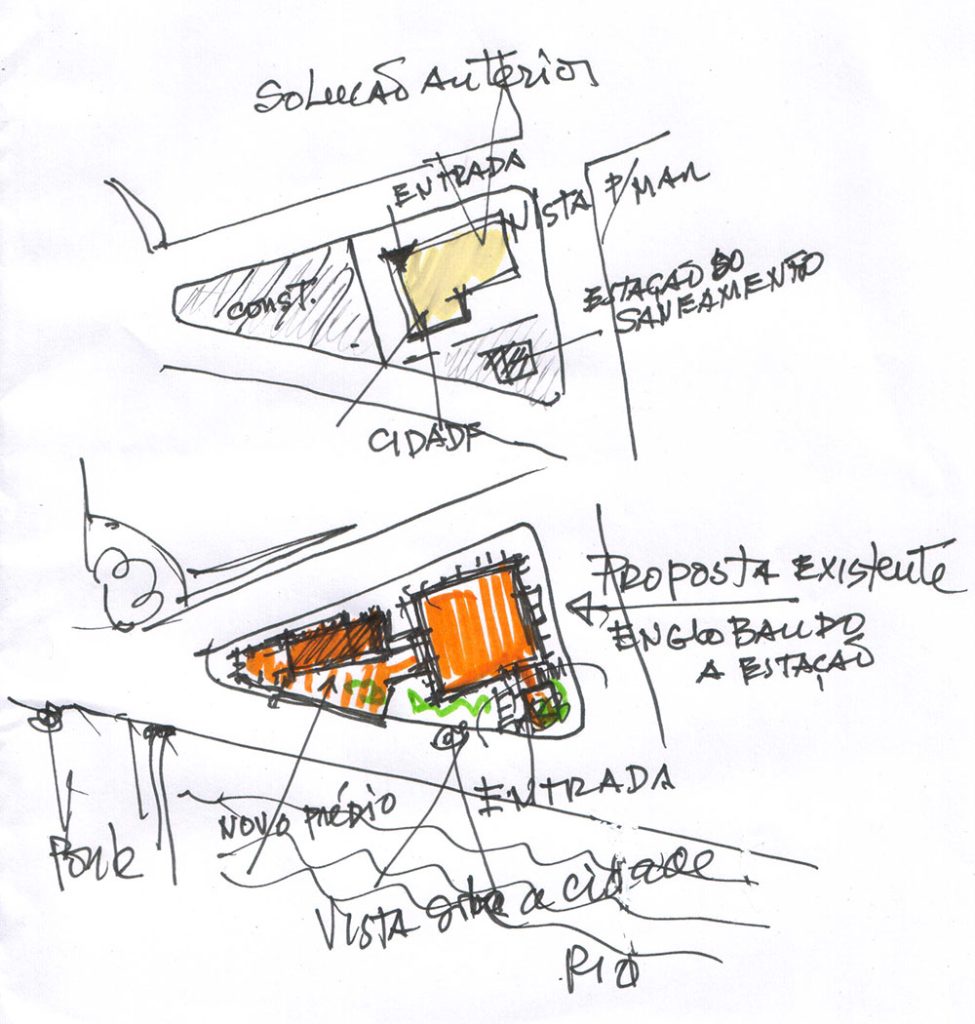 SOLUCAÕ ANTERIOR
ENTRADA
VISTA P/MAR
CONST.
ESTAÇAO DO
SANEAMENTO
CIDADE
PROPOSTA EXISTENTE
ENGLOBANDO
A ESTAÇAÕ
ENTRADA
NOVO PRÉDIO
VISTA sobre a cidade
RIO